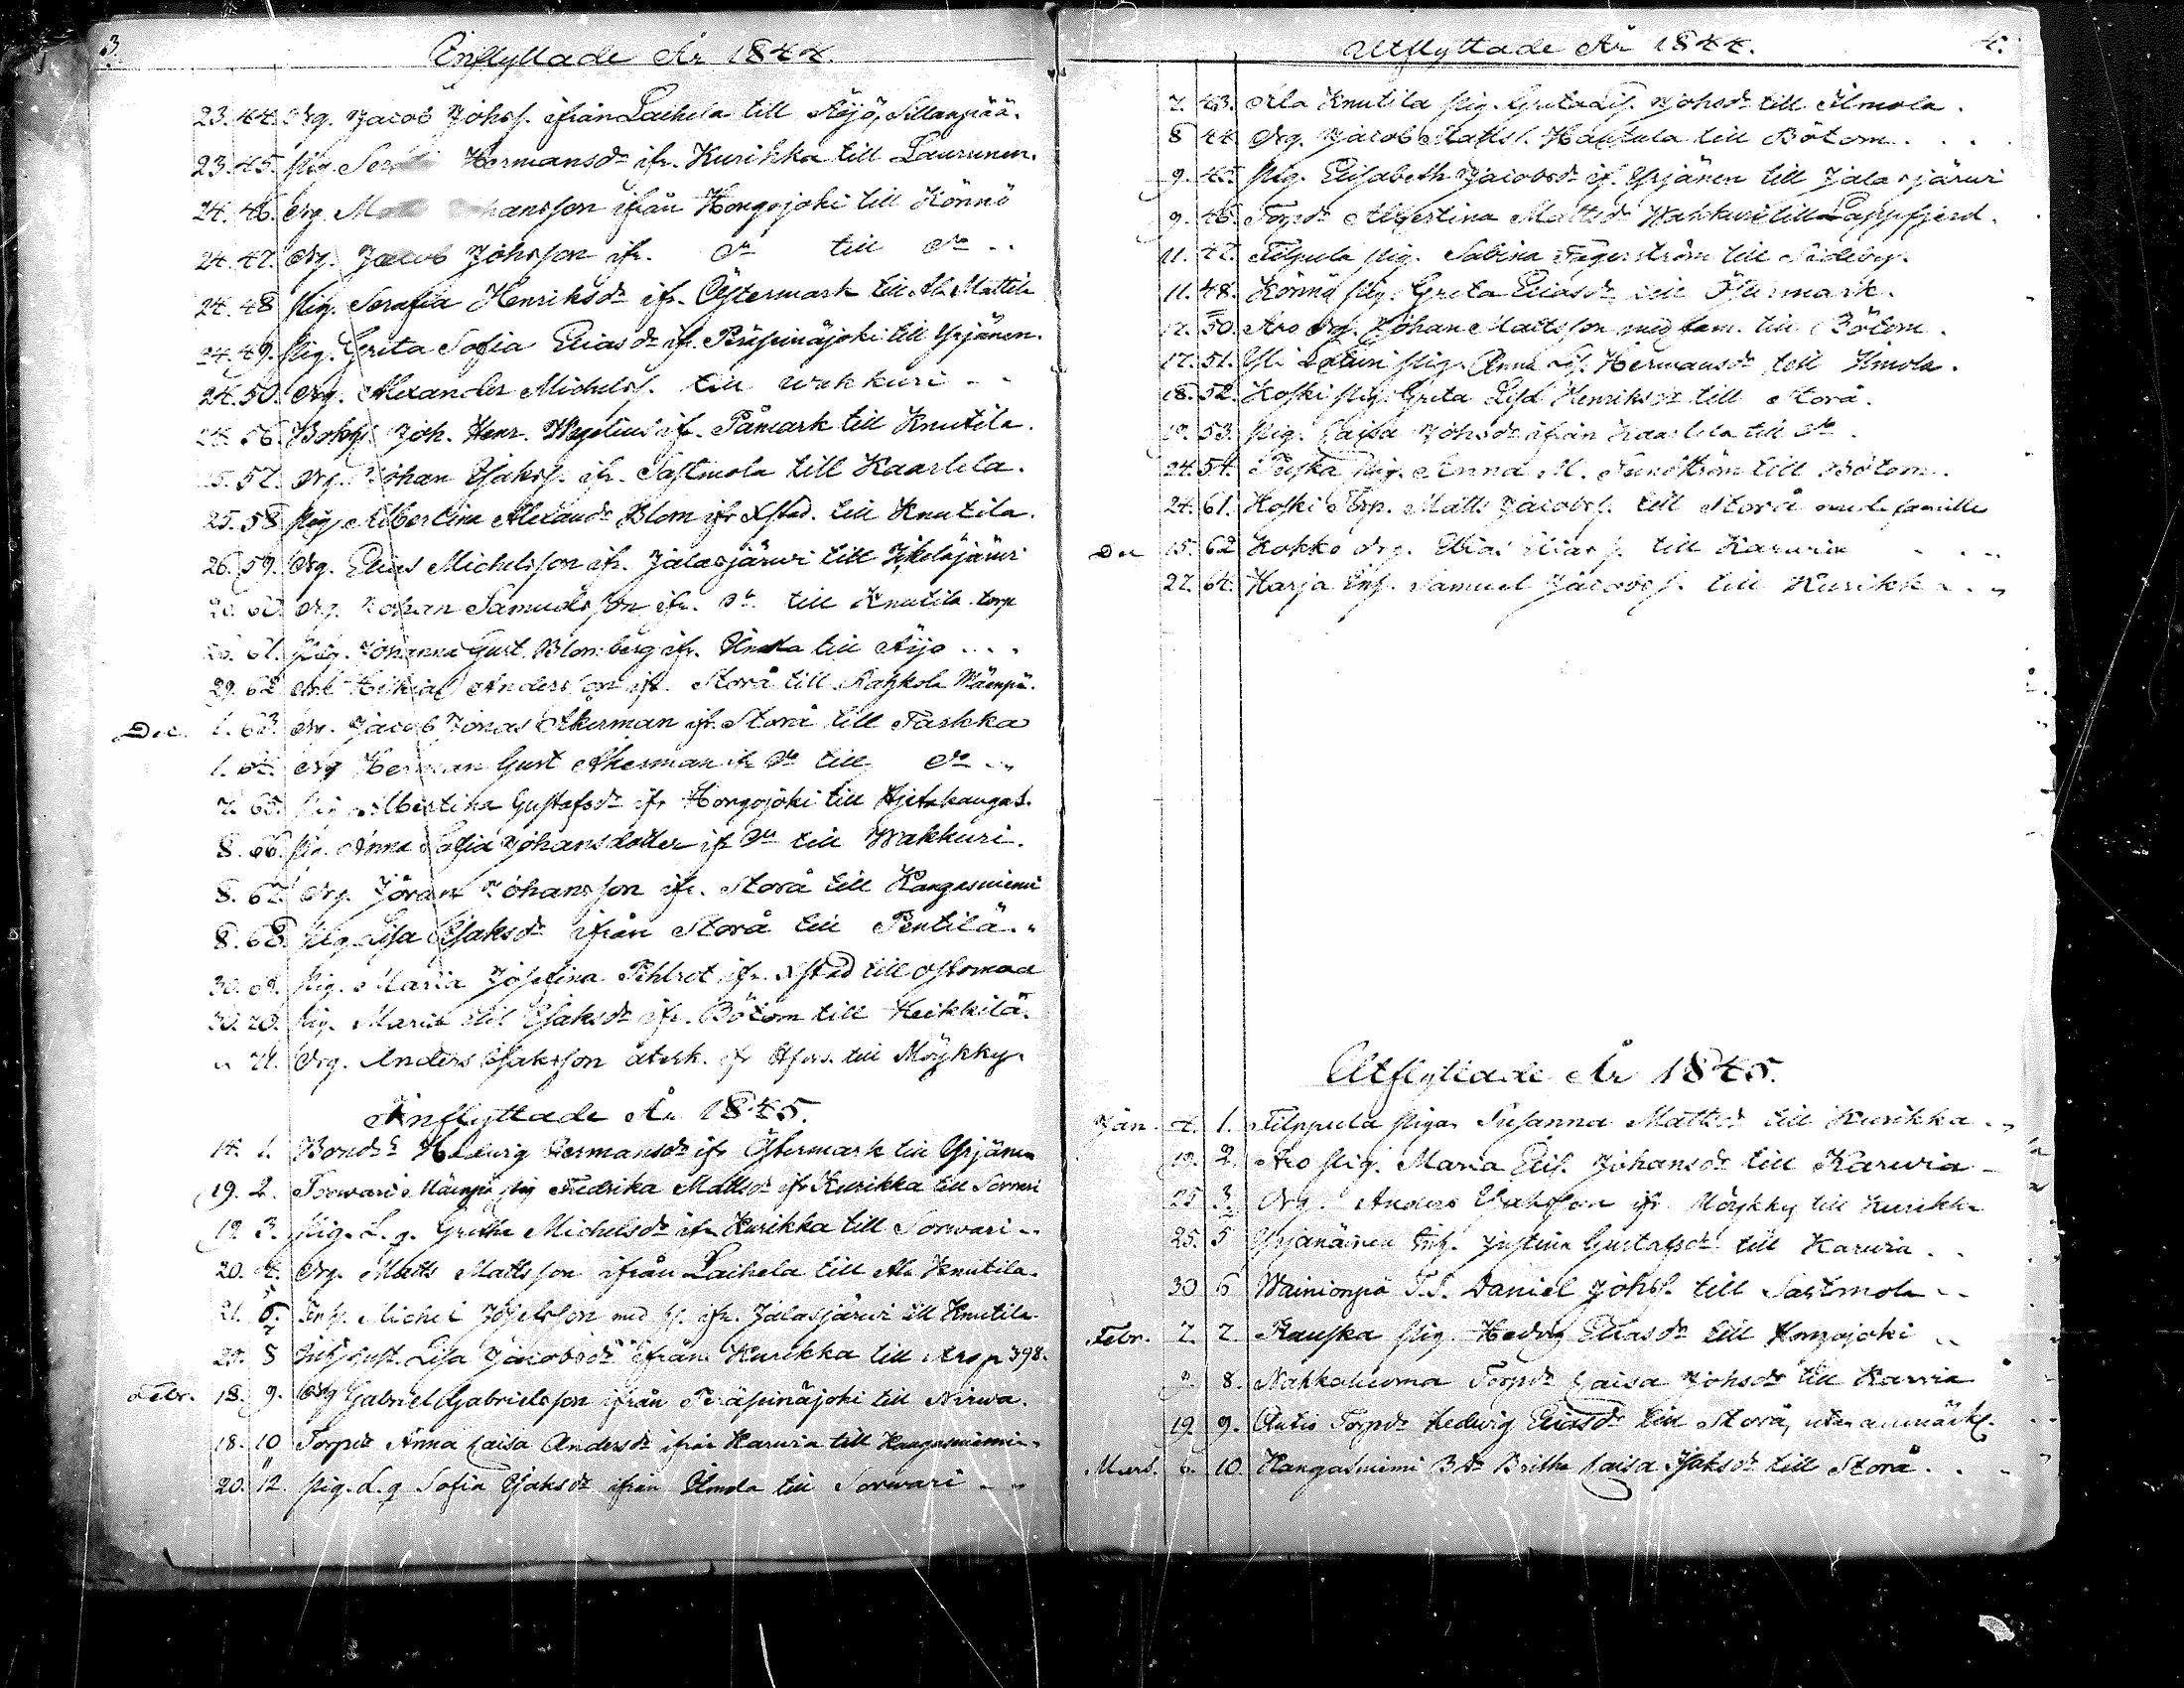 3.
Inflyttade År 1844.
23. 44. Drg. Jacob Johsf. ifrån Laihela till Äijö, Sillanpää.
23. 45. Pig. Hermansdr ifr. Kurikka till Laurunen.
24. 46. Drg. Matts Johansson ifrån Hongojoki till Könnö
24. 47. Drg. Jacob Johsson ifr. Do till Do ..
24. 48 Pig. Serafia Henriksdr ifr. Östermark till Ala Mattila
24. 49. Pig. Greta Sofia Eliasdr ifr. Peräseinäjoki till Yrjänen.
24. 50. Drg. Alexander Michelsf. till Wakkuri ..
24. 56. Bokh. Joh. Henr. Wegelius ifr. Påmark till Knutila.
25. 57. Drg. Johan Isaksf. ifr. Sastmola till Kaarlela.
25. 58 Pig. Albertina Alexandr Blom ifr Xstad. till Knutila.
26. 59. Drg. Elias Michelsson ifr. Jalasjärwi till Ikeläjärwi
26. 60. Drg. Johan Samuelsson ifr. Do till Knutila torp
26. 61. Pig. Johanna Gust. Blomberg ifr. till Äijö ...
29. 62 Andersson ifr. Storå till Ratzkola Mäenpä.
Dec. 1. 63. Drg. Jacob Jonas Åkerman ifr. Storå till Taskka
1. 64. Drg Herman Gust Åkerman ifr Do till Do ..
7. 65. Pig Albertina Gustafsdr ifr Hongojoki till Hjetakangas.
8. 66. Pig. Anna Sofia Johansdotter if Do till Wakkuri.
8. 67. Drg. Jöran Johansson ifr. Storå till Kangasniemi
8. 68. Pig. Lisa Isaksdr ifrån Storå till Pentilä..
30. 69. Pig. Maria Josefina ifr. Xstad till
30. 70. Pig. Maria Isaksdr ifr. Bötom till Heikkilä.
" 71. Drg. Anders Isaksson återk. ifr till Möykky.
Inflyttade År 1845.
14. 1. Hedwig Hermansdr ifr Östermark till Yrjänen
19. 2. Sorwari Mäenpä pig Fredrika Mattsdr ifr Kurikka till Sorwari
19. 3. Pig. L. g. Gretha Michelsdr ifr Kurikka till Sorwari ..
20. 4. Drg. Matts Mattsson ifrån Laihela till Ala Knutila.
21. 5. Inh. Michel Josefsson med h. ifr. Jalasjärwi till Knutila
25. 8 Lisa Jacobsdr ifrån Kurikka till Aro p 398.
Febr. 18. 9. Drg Gabriel Gabrielsson ifrån Peräseinäjoki till Nirwa.
18. 10 Torpdr Anna Caisa Andersdr ifrån Karwia till Kangasniemi..
20. 12. Pig. L. g Sofia Isaksdr ifrån Ilmola till Sorwari ..
Utflyttade År 1844.
4.
7. 43. Ala Knutila Pig. Greta Lis. Johsdr till Ilmola.
8 44. Drg. Jacob Mattsf. Hautala till Bötom ...
9. 45. Pig. Elisabeth Jacobsdr if. Yrjänen till Jalasjärwi
9. 46. Torpdr Albertina Mattsdr Wakkuri till Lappfjerd.
11. 47. Filpula Pig. Sabina Fagerström till Sideby.
11. 48. Könnö Pig. Greta Eliasdr till Östermark.
17. 50. Aro Drg. Johan Mattsson med fam. till Bötom.
17. 51. Yli Lauri Pig. Anna Lis. Hermansdr till Ilmola.
18. 52. Koski Pig. Greta Lisa Henriksdr till Storå.
19. 53. Pig. Caisa Johsdr ifrån Kaarlela till Do.
24. 54. Puska Pig. Anna M. Sundström till Bötom.
24. 61. Koski Torp. Matts Jacobsf. till Storå med familie
Dec 15. 62 Kokko Drg. Elias Eliasf. till Karwia ...
27. 64. Harja Inh. Samuel Jacobsf. till Kurikka ..
Utflyttade År 1845.
Jan. 4. 1. Filppula Pigan Susanna Mattsdr till Kurikka ..
19. 2. Aro Pig. Maria Elis. Johansdr till Karwia
25 3. Drg. Anders Isaksson ifr. Möykky till Kurikka
25. 5 Yrjänäinen Inh. Justina Gustafsdr till Karwia ..
30 6 Wainionpä T.S. Daniel Johsf. till Sastmola ..
Febr. 7. 7. Rauska Pig. Hedvig Eliasdr till Hongojoki ..
9. 8. Nahkaluoma Torpdr Caisa Johsdr till Karwia
19 9. Autio Torpdr Hedwig Eliasdr till Storå, utan anmärk.
Mart. 6. 10. Kangasniemi B Dr Britha Caisa Isaksdr till Storå ..